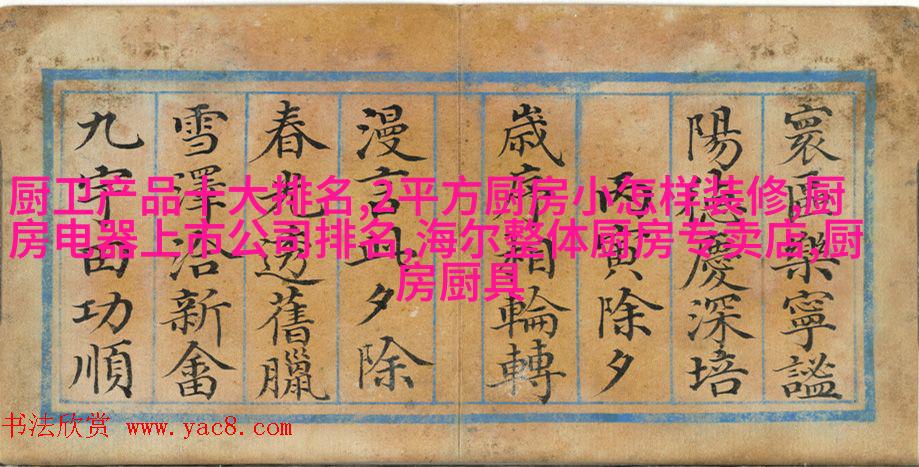 厨卫产品十大排名,2平方厨房小怎样装修,厨
房电器上市公司排名,海尔整体厨房专卖店,厨
房厨具
寰區樂寧謐
陽德慶深培
丙寅除夕
歲相輪轉
漫言此夕除
春舊臘
雪澤沾新畬
九宇田功順
书法欣赏 www.yac8.com